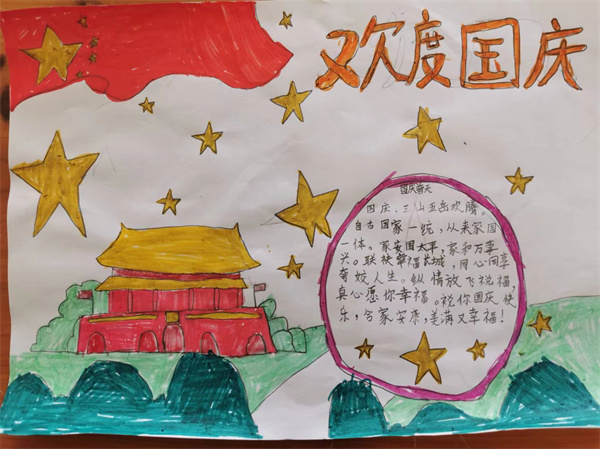 欢度国庆
国庆
国庆,三山五岳欢腾。
自古国家一统,从来家国
一体。家安国太平,家和万事
兴。联袂幸福长城,同心同享
奢姣人生。纵情放飞祝福,
真心愿你幸福。祝你国庆快
乐,合家安康,美满又幸福!